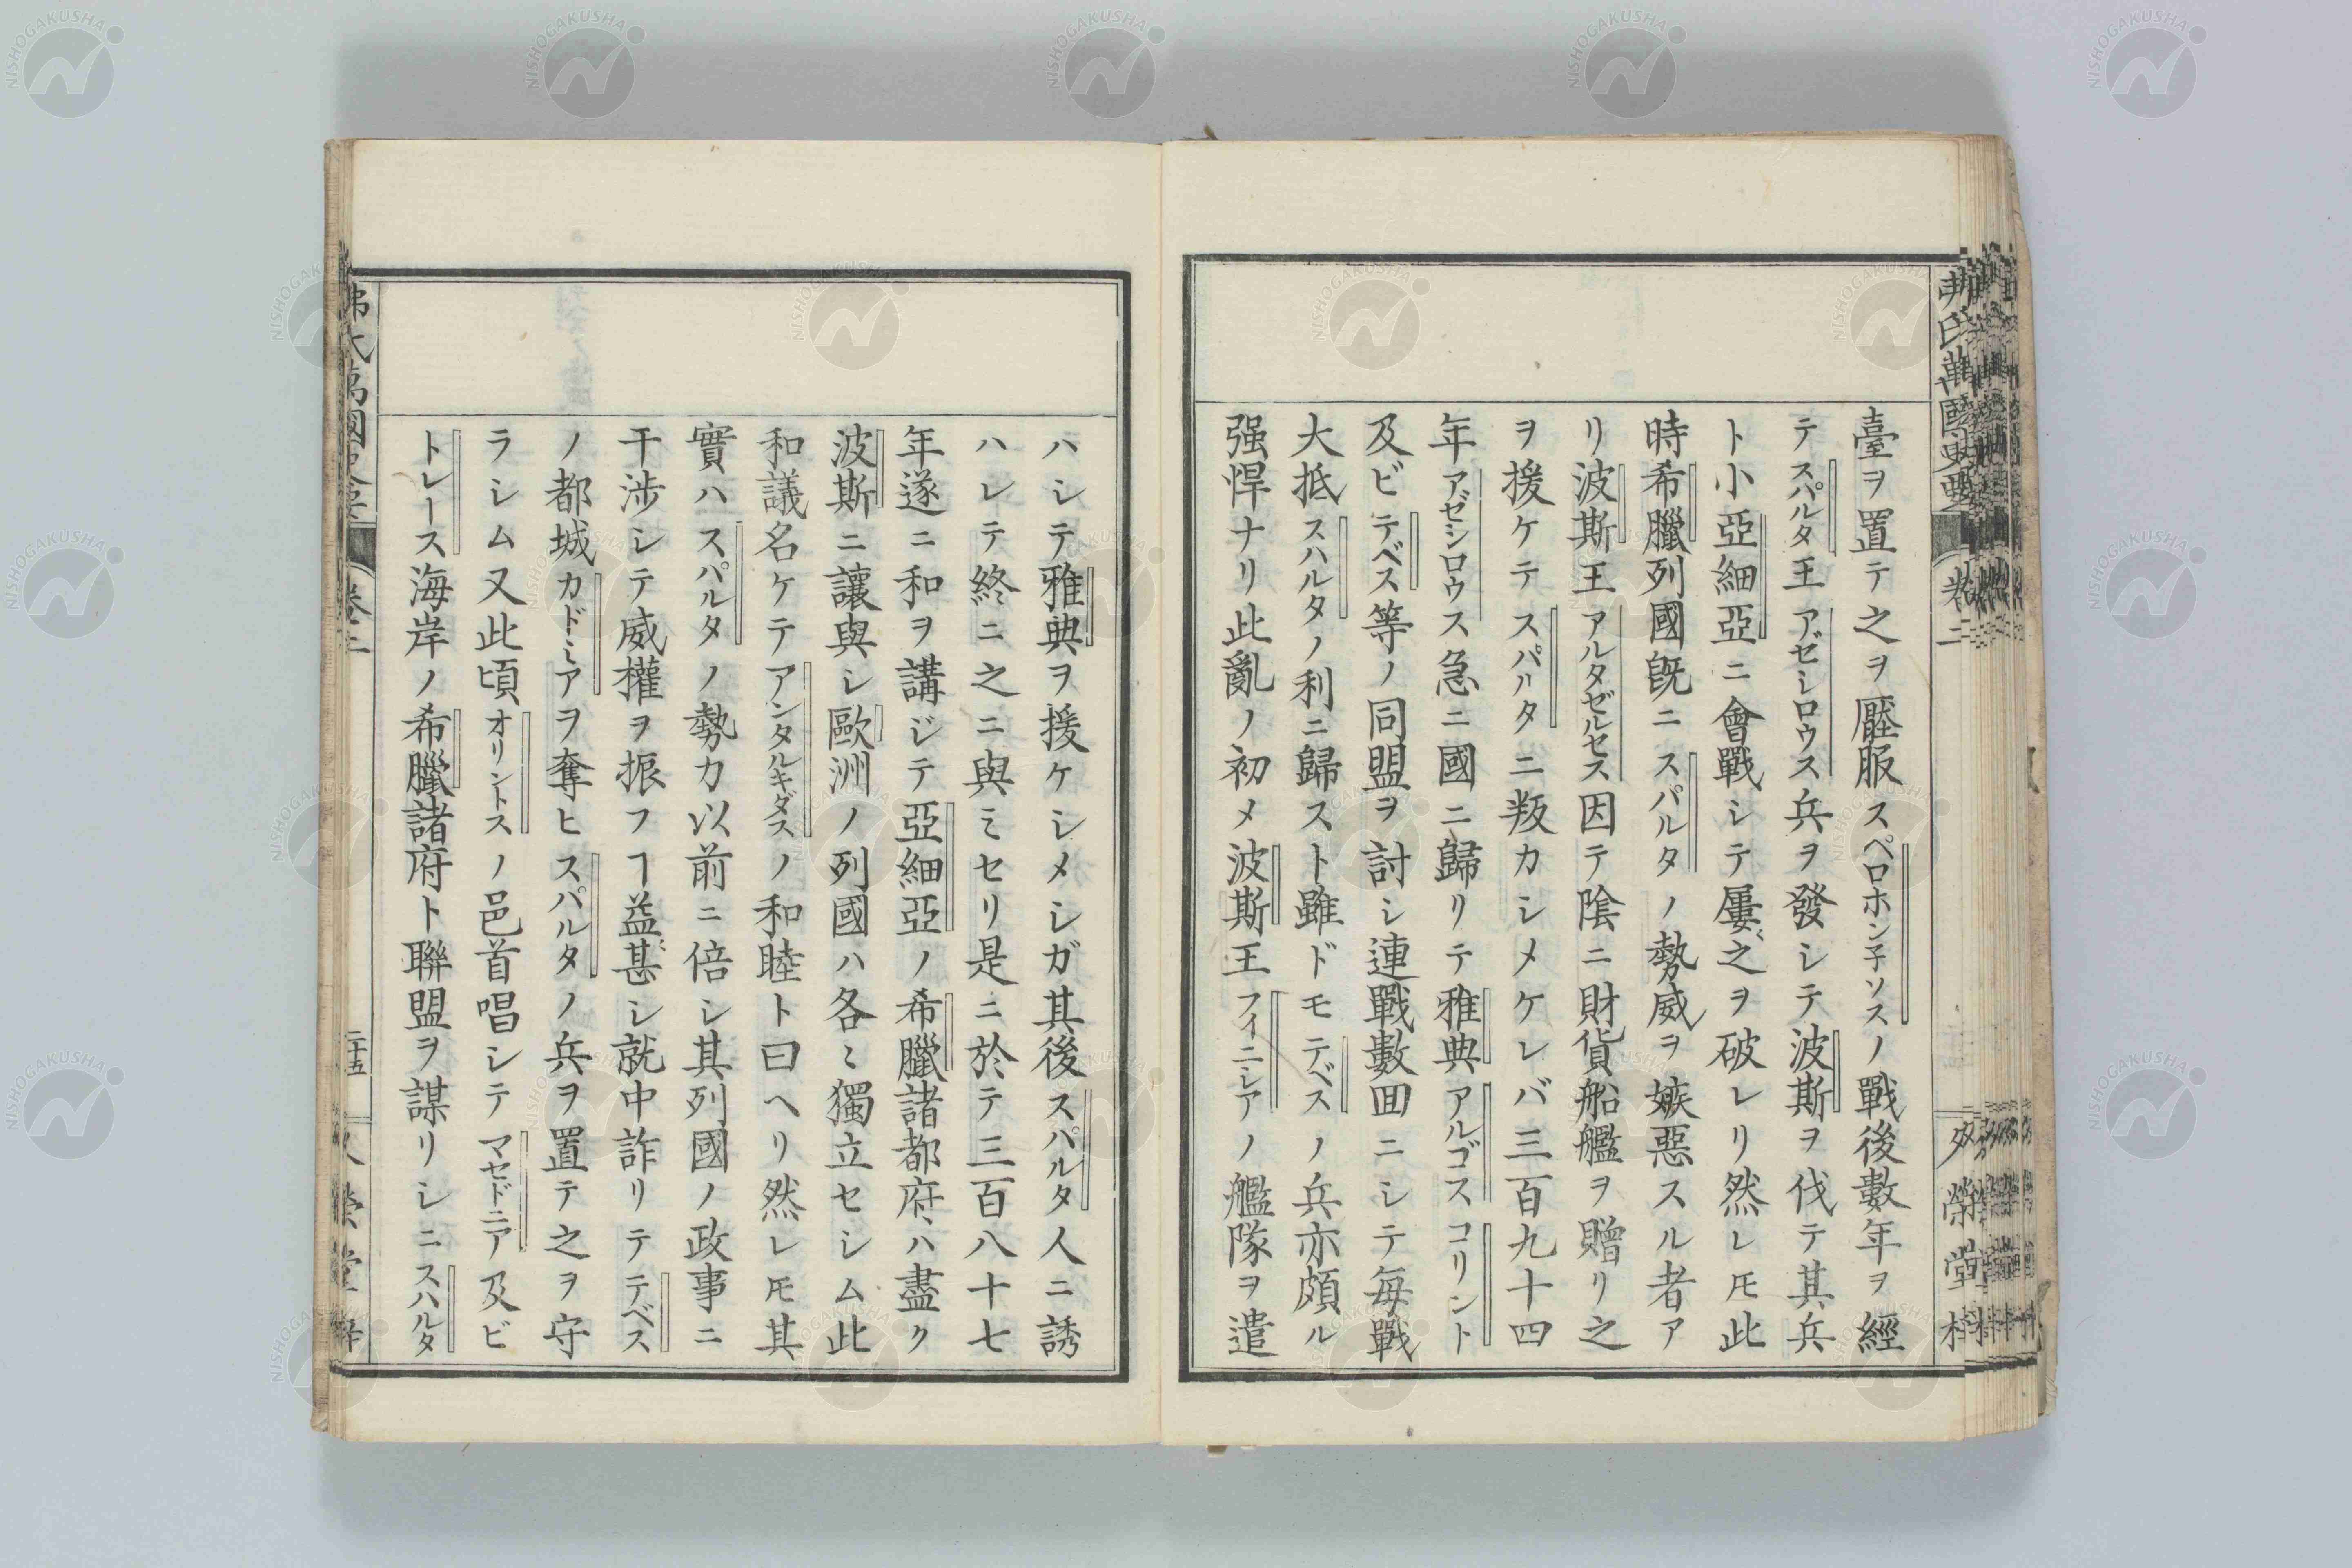 臺ヲ置テ之ヲ壓服スペロホン子ソスノ戰後數年ヲ經
テスパルタ王アゼシロウス兵ヲ發シテ波斯ヲ伐テ其兵
ト小亞細亞ニ會戰シテ屢〻之ヲ破レリ然レ𪜈此
時希臘列國既ニスパルタノ勢威ヲ嫉惡スル者ア
リ波斯王アルタゼルセス因テ陰ニ財貨船艦ヲ贈リ之
ヲ援ケテスパルタニ叛カシメケレバ三百九十四
年アゼシロウス急ニ國ニ歸リテ雅典アルゴスコリント
及ビテベス等ノ同盟ヲ討シ連戰數囬ニシテ每戰
大抵スハルタノ利ニ歸スト雖ドモテベスノ兵亦頗ル
强悍ナリ此亂ノ初メ波斯王フィニシアノ艦隊ヲ遣
ハシテ雅典ヲ援ケシメシガ其後スパルタ人ニ誘
ハレテ終ニ之ニ與ミセリ是ニ於テ三百八十七
年遂ニ和ヲ講ジテ亞細亞ノ希臘諸都府ハ盡ク
波斯ニ讓與シ歐洲ノ列國ハ各〻獨立セシム此
和議名ケテアンタルキダスノ和睦ト曰ヘリ然レ𪜈其
實ハスパルタノ勢力以前ニ倍シ其列國ノ政事ニ
干涉シテ威權ヲ振フヿ益〻甚シ就中詐リテテベス
ノ都城カドミアヲ奪ヒスパルタノ兵ヲ置テ之ヲ守
ラシム又此頃オリントスノ邑首唱シテマセドニア及ビ
トレース海岸ノ希臘諸府ト聯盟ヲ謀リシニスハルタ
卷二
二十五
NISHOGAKUSHA